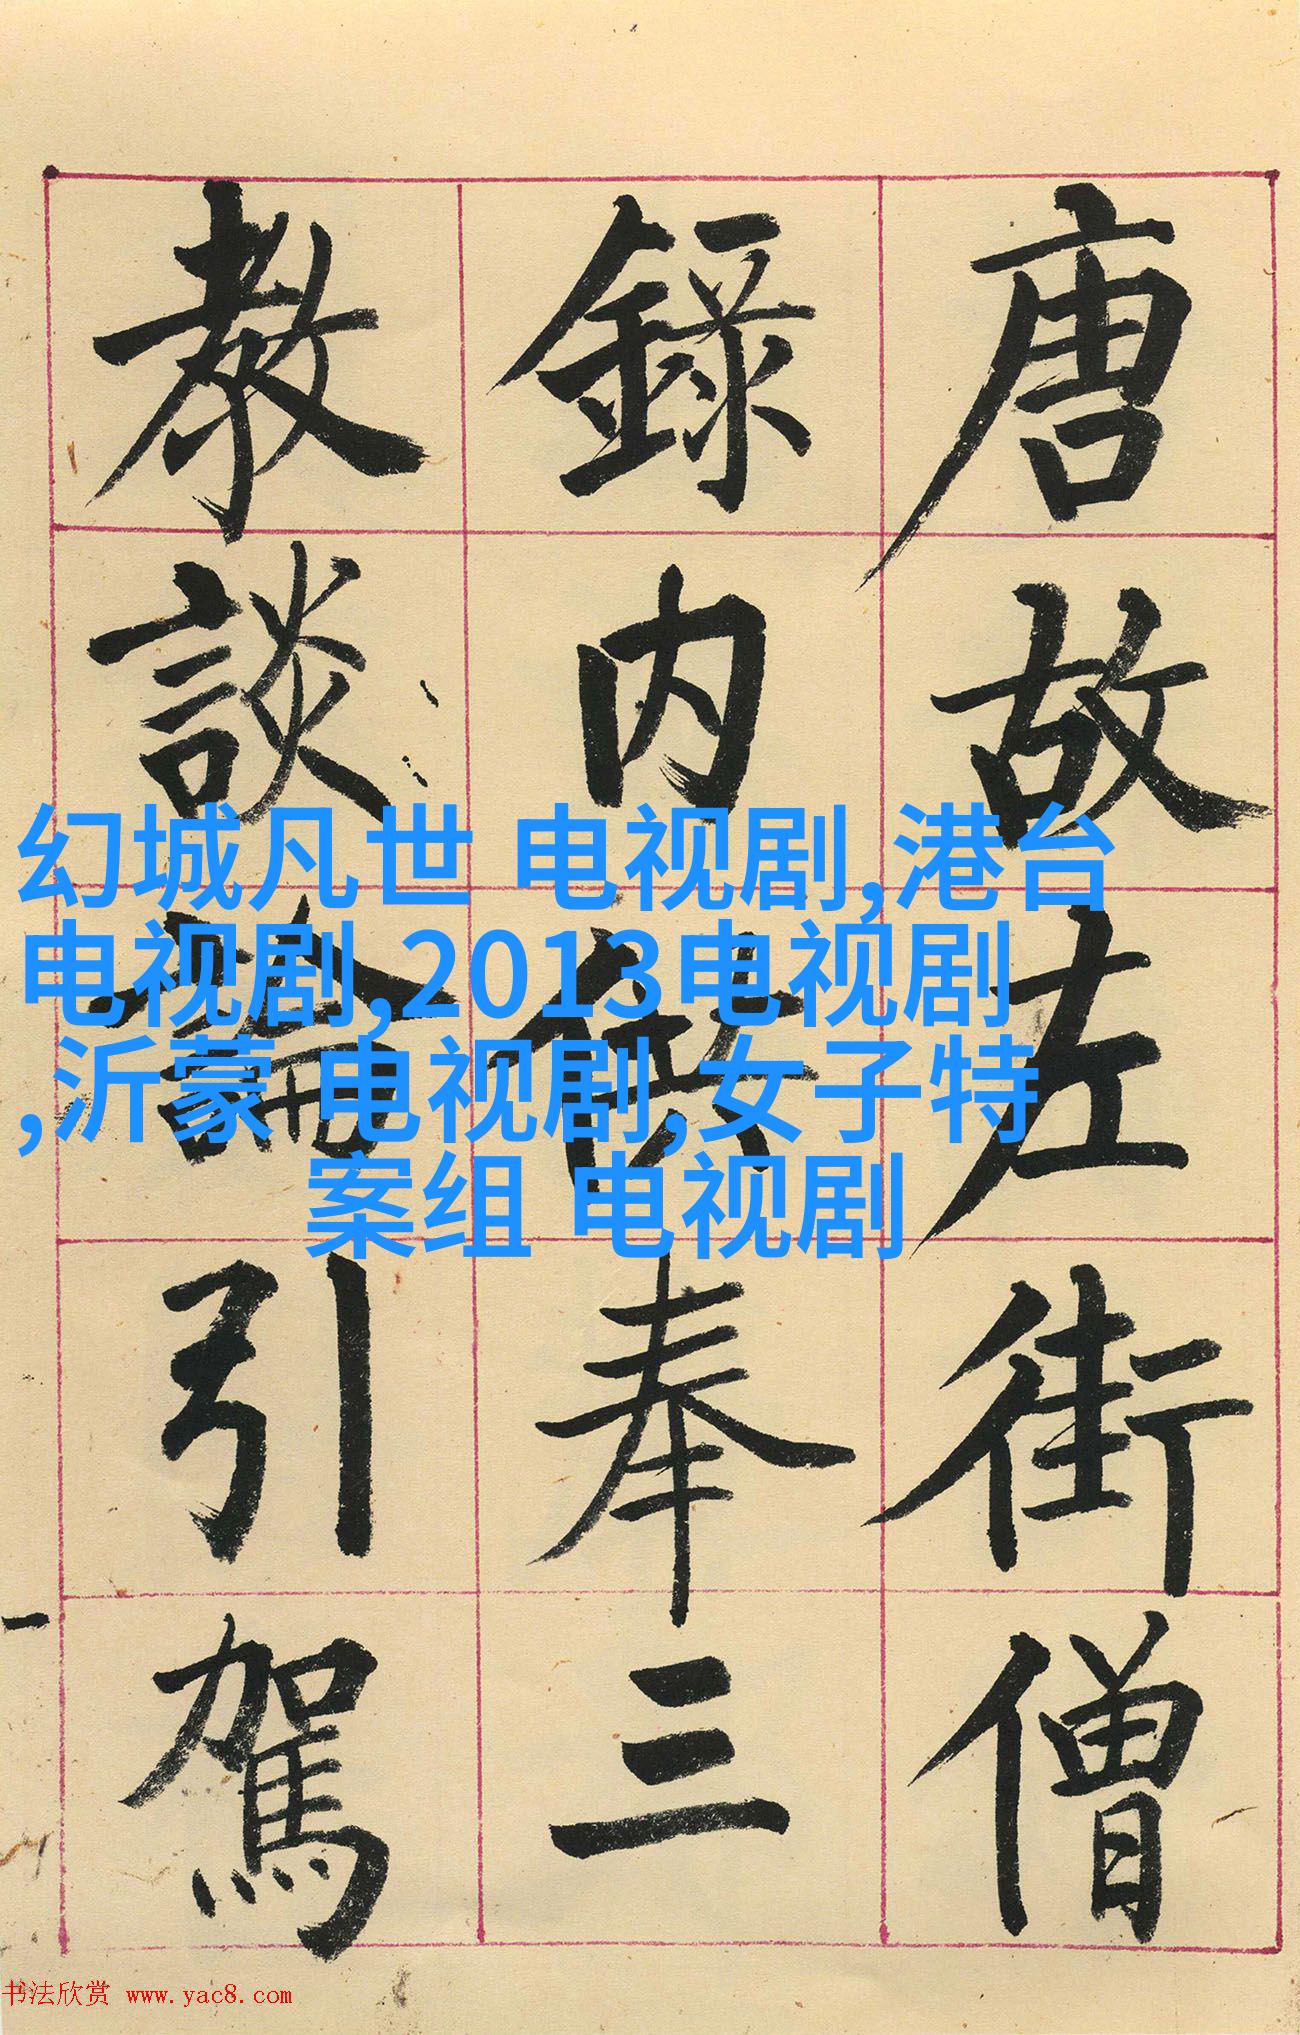 唐故左街僧
錄内供奉三
教談論引駕
幻城凡世 电视剧,港台
电视剧,2013电视剧
,沂蒙 电视剧,女子特
案组 电视剧
书法欣赏 www.yac8.com